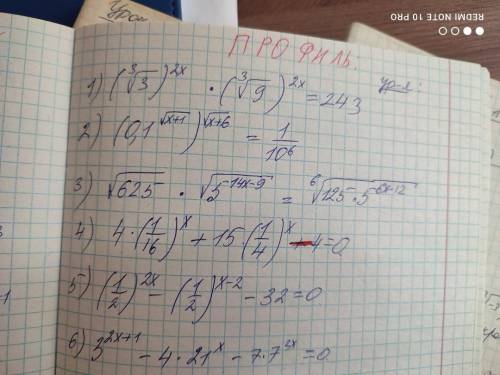 Урок
REDMI NOTE 10 PRO
ПРОФИЛЬ.
ур-я.
1) (∛3)^{2x} · (∛9)^{2x} = 243
2) (0,1^{√(x+1)})^{√(x+6)} = 1/10^6
3) √625 · √(5^{14x-9}) = ⁶√(125·5^{6x-12})
4) 4·(1/16)^x + 15(1/4)^x - 4 = 0
5) (1/2)^{2x} - (1/2)^{x-2} - 32 = 0
6) 3^{2x+1} - 4·21^x - 7·7^{2x} = 0